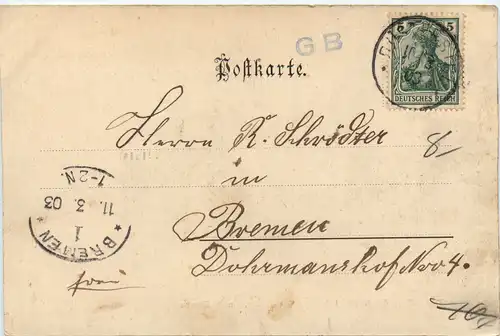 GB
5
Postkarte.
DEUTSCHES REICH
Herrn R. Schrödter
8
in
Bremen
Dohrmannshof No 4.
BREMEN
1
11. 3. 03
1-2N.